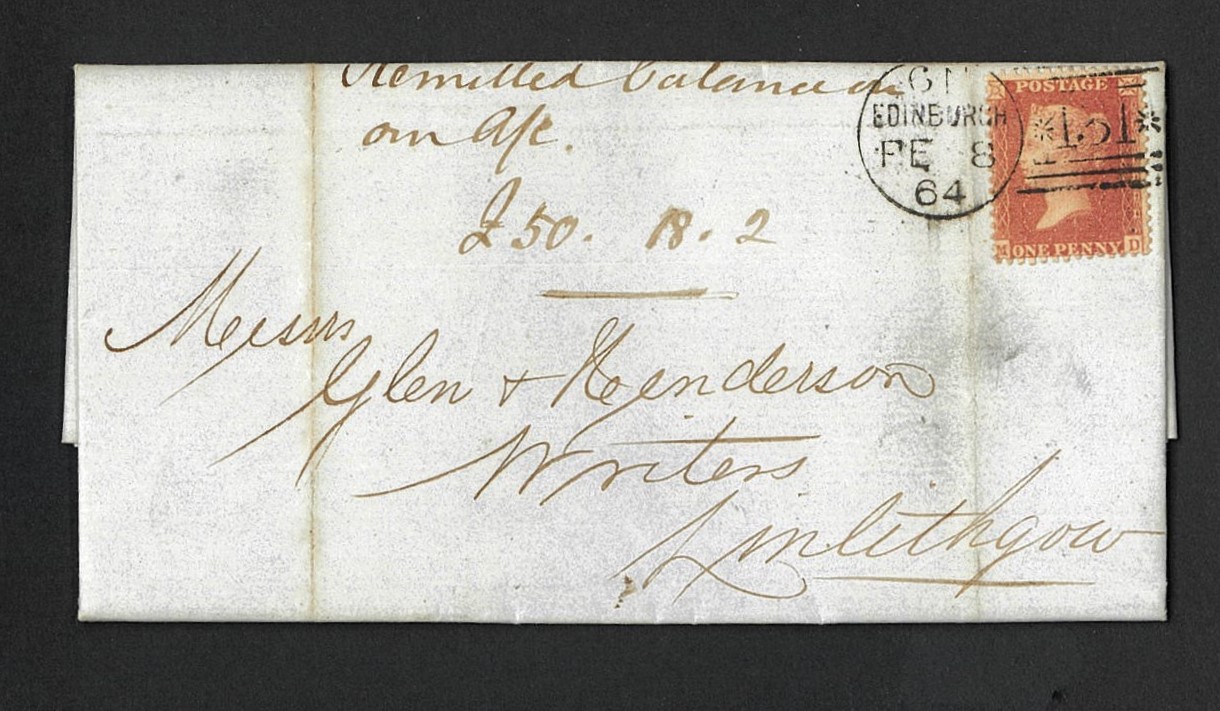 Remitted balance on
our A/c.
£50. 18. 2
EDINBURGH
FE 8
64
POSTAGE
131
ONE PENNY D
Messrs
Glen & Henderson
Writers
Linlithgow